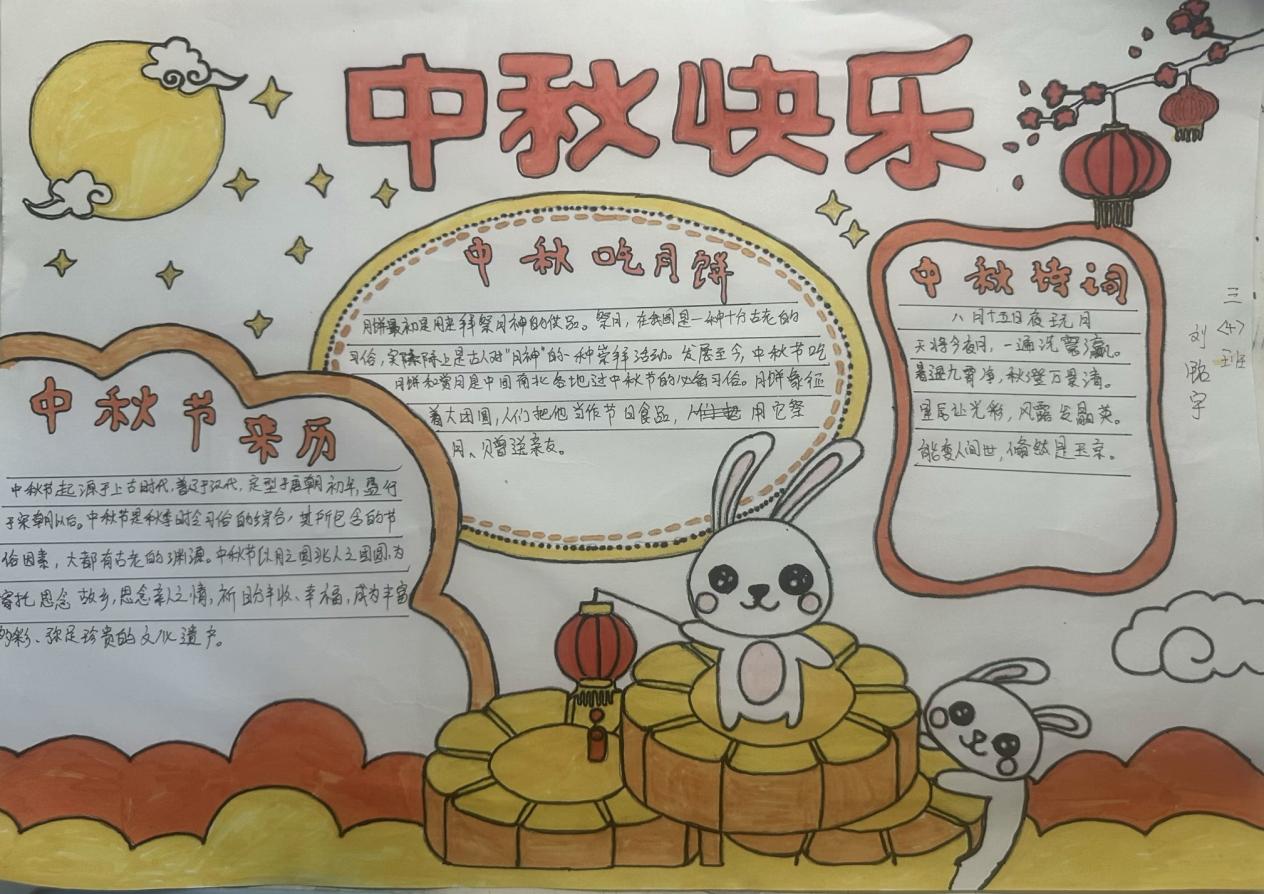 中秋快乐
中秋吃月饼
月饼最初是用来拜祭月神的供品。祭月，在我国是一种十分古老的
习俗，实际上是古人对"月神"的一种崇拜活动。发展至今，中秋节吃
月饼和赏月是中国南北各地过中秋节的必备习俗。月饼象征
着大团圆，人们把他当作节日食品，用它祭
月、赠送亲友。
中秋诗词
八月十五日夜玩月
天将今夜月，一遍洗寰瀛。
暑退九霄净，秋澄万景清。
星辰让光彩，风露发晶英。
能变人间世，翛然是玉京。
三〈4〉班
刘宇
中秋节来历
中秋节起源于上古时代，普及于汉代，定型于唐朝初年，盛行
于宋朝以后。中秋节是秋季时令习俗的综合，其所包含的节
俗因素，大都有古老的渊源。中秋节以月之圆兆人之团圆，为
寄托思念故乡，思念亲人之情，祈盼丰收、幸福，成为丰富
多彩、弥足珍贵的文化遗产。